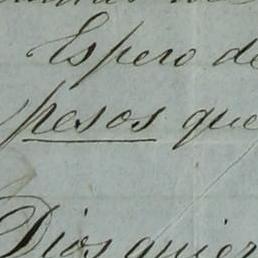 Espero de
pesos que
Dios quier